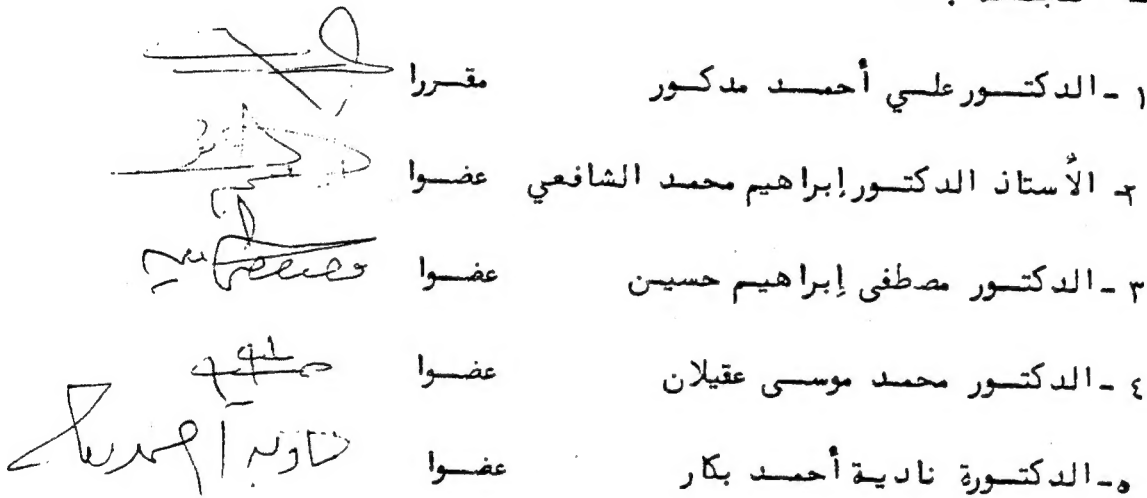 ١ - الدكتور علي أحمد مدكور مقررا
٢ - الأستاذ الدكتور إبراهيم محمد الشافعي عضوا
٣ - الدكتور مصطفى إبراهيم حسين عضوا
٤ - الدكتور محمد موسى عقيلان عضوا
٥ - الدكتورة نادية أحمد بكار عضوا